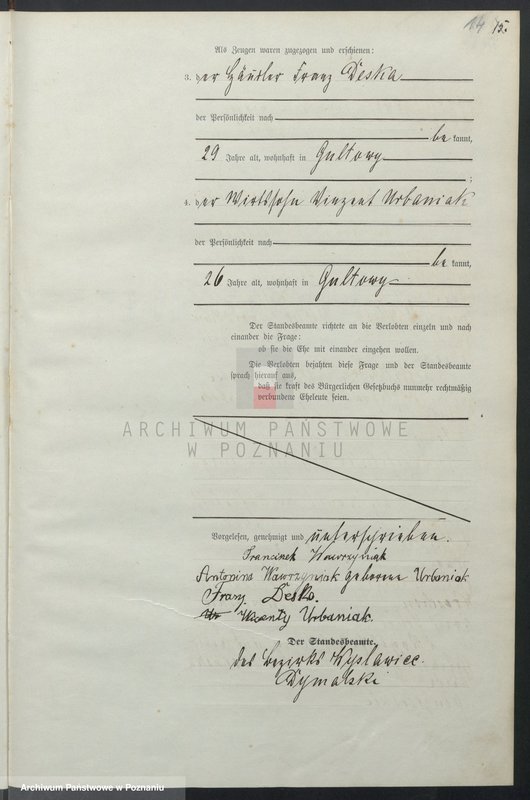 14 15.
Als Zeugen waren zugezogen und erschienen:
3. der Häusler Franz Deska
der Persönlichkeit nach
be kannt,
29 Jahre alt, wohnhaft in Gultowy
;
4. der Wirtssohn Vinzent Urbaniak
der Persönlichkeit nach
be kannt,
26 Jahre alt, wohnhaft in Gultowy
Der Standesbeamte richtete an die Verlobten einzeln und nach
einander die Frage:
ob sie die Ehe mit einander eingehen wollen.
Die Verlobten bejahten diese Frage und der Standesbeamte
sprach hierauf aus,
daß sie kraft des Bürgerlichen Gesetzbuchs nunmehr rechtmäßig
verbundene Eheleute seien.
ARCHIWUM PAŃSTWOWE
W POZNANIU
Vorgelesen, genehmigt und unterschrieben.
Franciszek Wawrzyniak
Antonina Wawrzyniak geborene Urbaniak
Franz Deska.
Wicenty Urbaniak.
Der Standesbeamte.
des Bezirks Wyslawice.
Dymalski
Archiwum Państwowe w Poznaniu